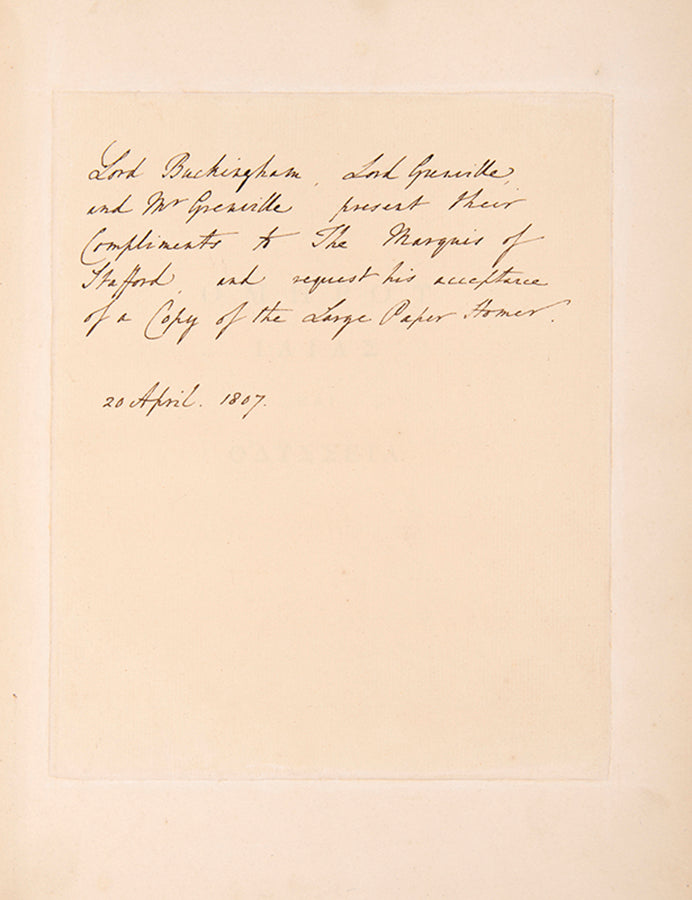 Lord Buckingham, Lord Grenville,
and Mr Grenville present their
Compliments to The Marquis of
Stafford, and request his acceptance
of a Copy of the Large Paper Homer.
20 April. 1807.